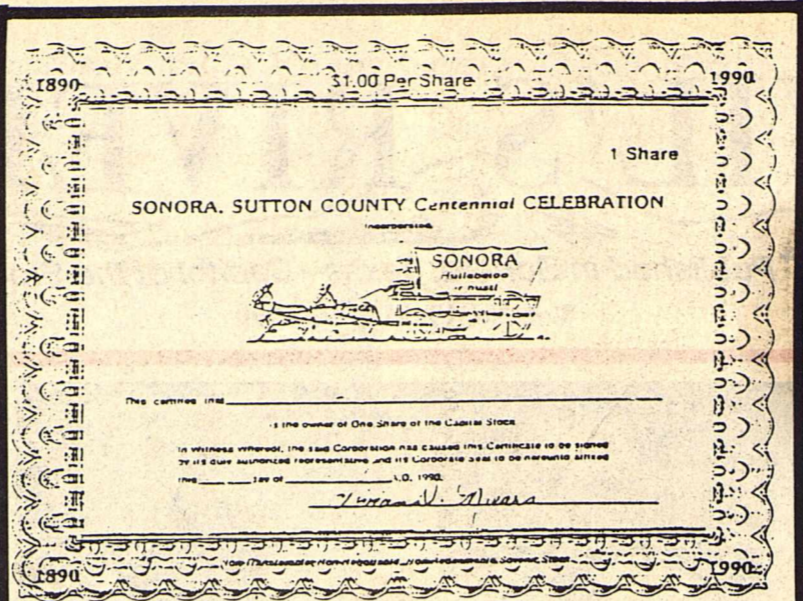 1890 $1.00 Per Share 1990
1 Share
SONORA, SUTTON COUNTY Centennial CELEBRATION
Incorporated
SONORA
This certifies that
is the owner of One Share of the Capital Stock
In Witness Whereof, the said Corporation has caused this Certificate to be signed
by its duly authorized representative and its Corporate Seal to be hereunto affixed
this day of A.D. 1990.
1890 1990